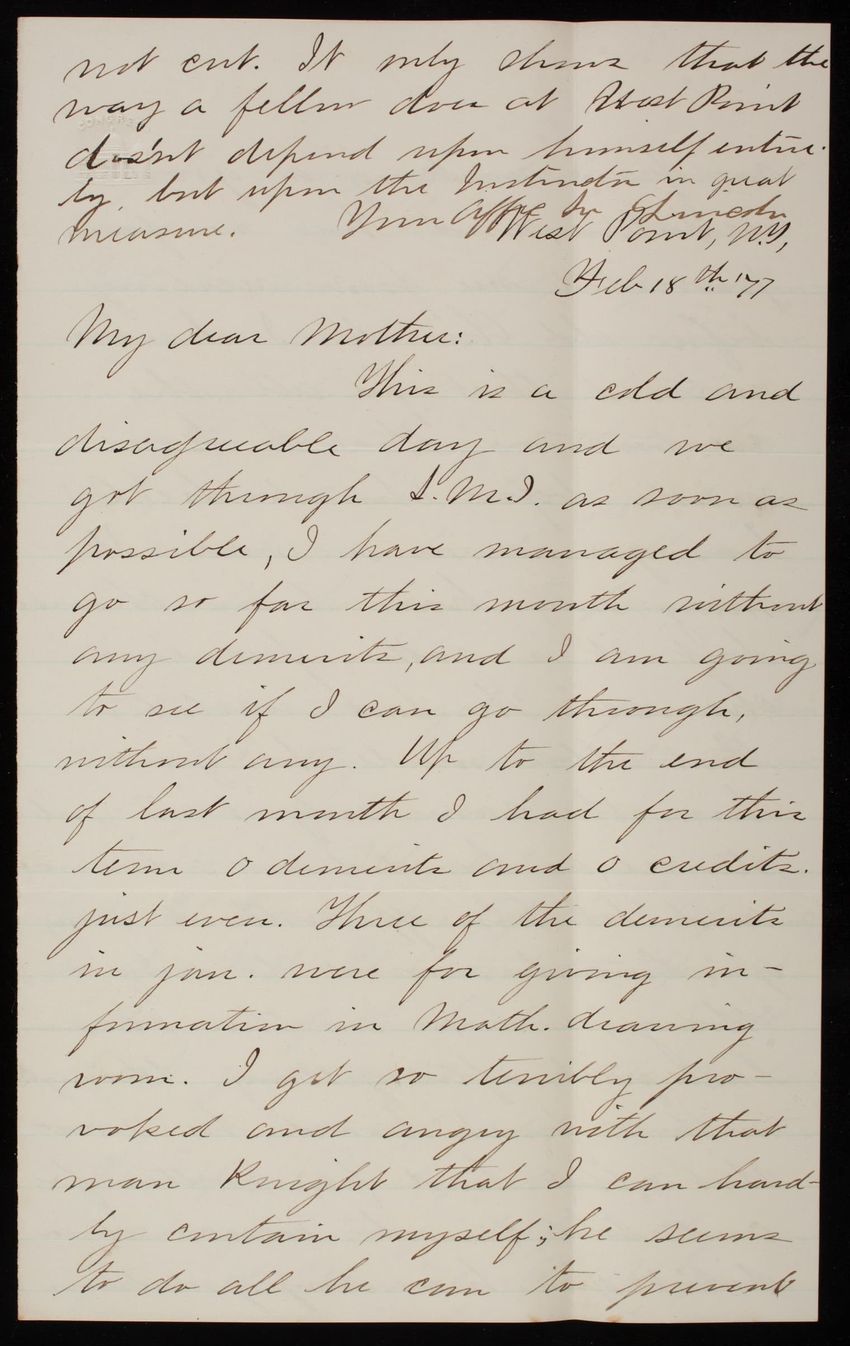 not cut. It only shows that the
way a fellow does at West Point
does'nt depend upon himself entire-
ly, but upon the Instructor in great
measure. Your Aff
West Point, N.Y,
Feb 18th '77
My dear Mother:
This is a cold and
disagreeable day and we
got through S.M.I. as soon as
possible, I have managed to
go so far this month without
any demerits, and I am going
to see if I can go through,
without any. Up to the end
of last month I had for this
term 0 demerits and 0 credits.
just even. Three of the demerits
in jan. were for giving in-
formation in Math. drawing
room. I get so terribly pro-
voked and angry with that
man Knight that I can hard-
ly contain myself; he seems
to do all he can to prevent
CONGRESS